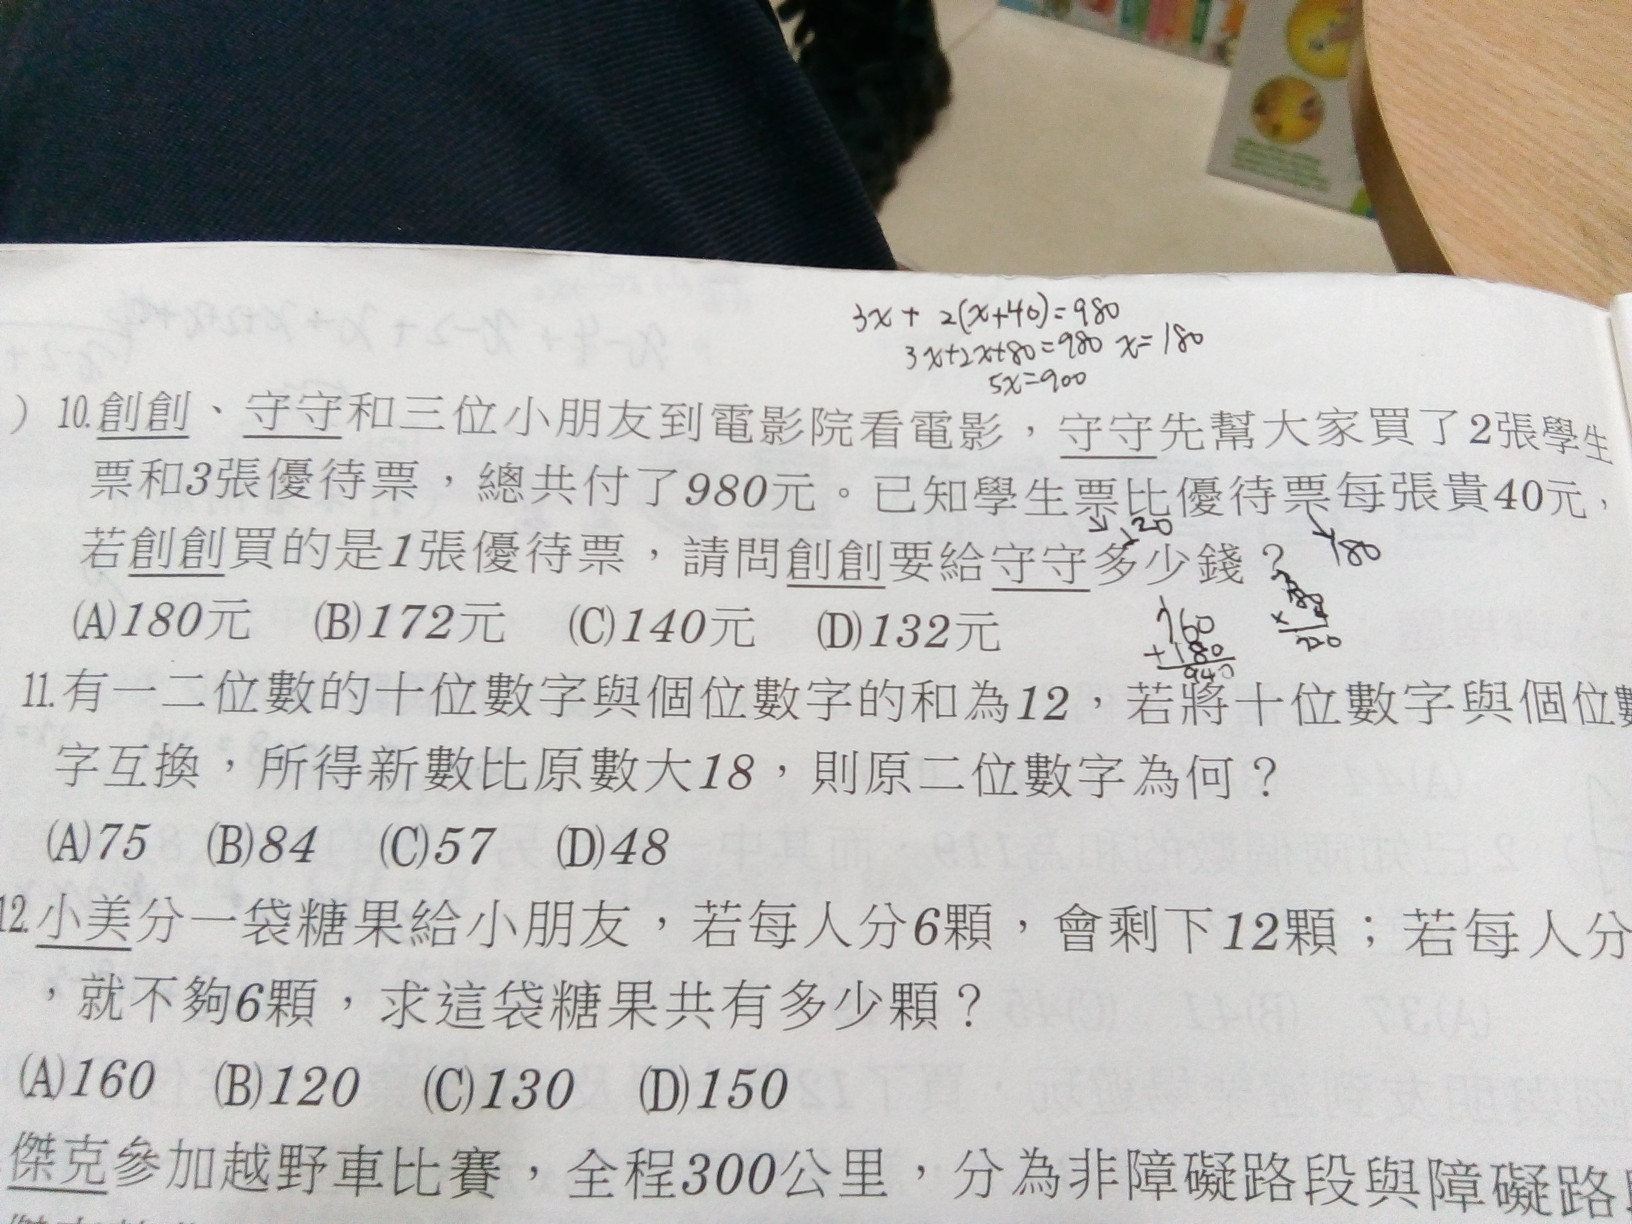 3x + 2(x+40)=980
3x+2x+80=980 x=180
5x=900
)10.創創、守守和三位小朋友到電影院看電影，守守先幫大家買了2張學生
票和3張優待票，總共付了980元。已知學生票比優待票每張貴40元，
若創創買的是1張優待票，請問創創要給守守多少錢？
180
(A)180元 (B)172元 (C)140元 (D)132元
760
+180
940
11.有一二位數的十位數字與個位數字的和為12，若將十位數字與個位數
字互換，所得新數比原數大18，則原二位數字為何？
(A)75 (B)84 (C)57 (D)48
12.小美分一袋糖果給小朋友，若每人分6顆，會剩下12顆；若每人分
，就不夠6顆，求這袋糖果共有多少顆？
(A)160 (B)120 (C)130 (D)150
傑克參加越野車比賽，全程300公里，分為非障礙路段與障礙路